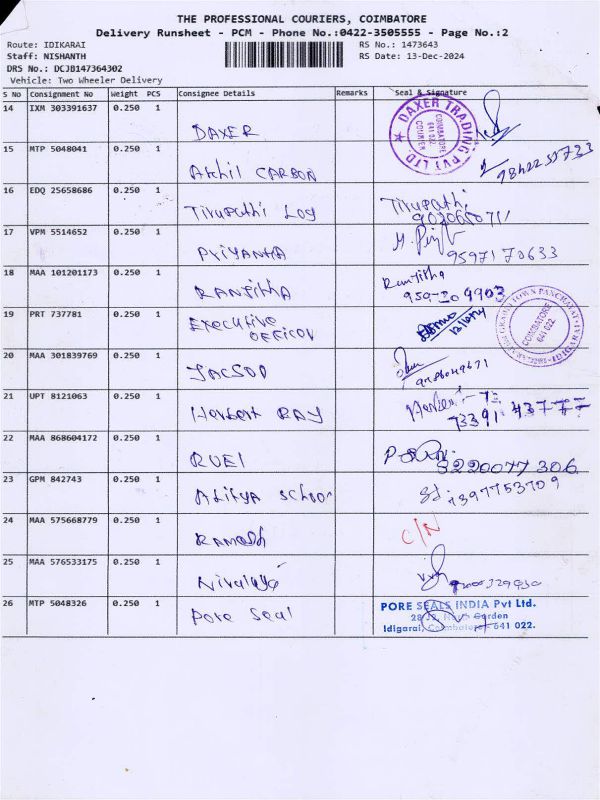 THE PROFESSIONAL COURIERS, COIMBATORE
Delivery Runsheet - PCM - Phone No.:0422-3505555 - Page No.:2
Route: IDIKARAI
RS No.: 1473643
Staff: NISHANTH
RS Date: 13-Dec-2024
DRS No.: DCJB147364302
Vehicle: Two Wheeler Delivery
S No Consignment No Weight PCS Consignee Details Remarks Seal & Signature
14 IXM 303391637 0.250 1
DAXER
DAXER TRADING PVT LTD.
COIMBATORE
641 022
COURIER
15 MTP 5048041 0.250 1
Akhil CARBON
16 EDQ 25658686 0.250 1
Tirupathi Log
Tirupathi
17 VPM 5514652 0.250 1
PriyANKA
9597170633
18 MAA 101201173 0.250 1
RANJithA
Ranjitha
19 PRT 737781 0.250 1
Executive
OFFICOV
COIMBATORE
641 022
20 MAA 301839769 0.250 1
JACSOD
21 UPT 8121063 0.250 1
Herbert RAY
73391 43777
22 MAA 868604172 0.250 1
RUEI
3220077306
23 GPM 842743 0.250 1
Aditya School
7397753709
24 MAA 575668779 0.250 1
Ramesh
C/N
25 MAA 576533175 0.250 1
26 MTP 5048326 0.250 1
Pore Seal
PORE SEALS INDIA Pvt Ltd.
Garden
Idigarai, Coimbatore - 641 022.